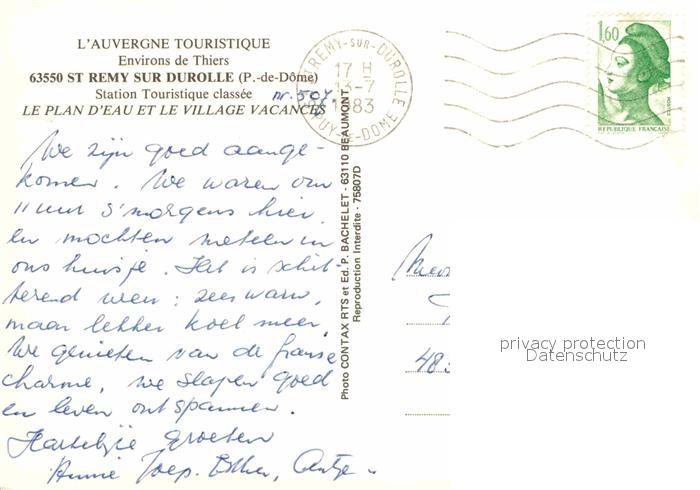 L'AUVERGNE TOURISTIQUE
Environs de Thiers
63550 ST REMY SUR DUROLLE (P.-de-Dôme)
Station Touristique classée
nr. 507
LE PLAN D'EAU ET LE VILLAGE VACANCES
We zijn goed aange-
komen. We waren om
11 uur s'morgens hier
en mochten meteen in
ons huisje. Het is schit-
terend weer: zeer warm,
maar lekker koel meer.
We genieten van de franse
charme, we slapen goed
en leven ontspannen.
Hartelijke groeten
Annie Joep. Esther, Antje
Photo CONTAX RTS et Ed. P. BACHELET - 63110 BEAUMONT
Reproduction Interdite - 75807D
REMY-SUR-DUROLLE
17 H
13-7
1983
PUY-DE-DOME
1,60
REPUBLIQUE FRANÇAISE
48
privacy protection
Datenschutz